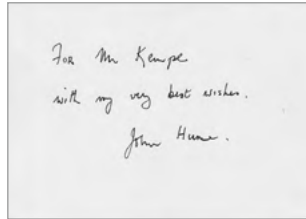 For Mr Kempe
with my very best wishes.
John Hume.